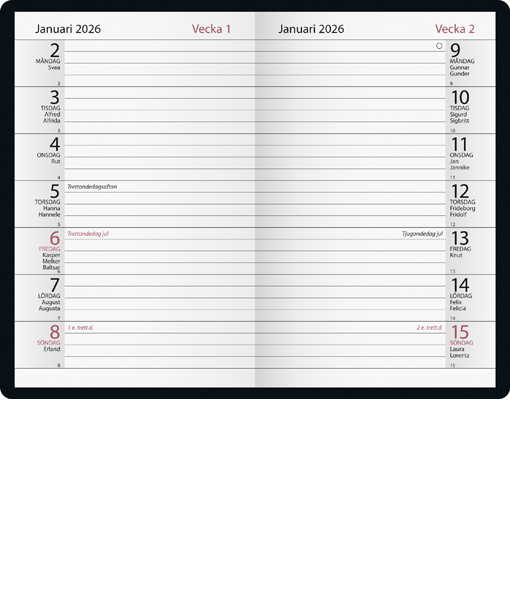 Januari 2026 Vecka 1
2
MÅNDAG
Svea
2
3
TISDAG
Alfred
Alfrida
3
4
ONSDAG
Rut
4
5 Trettondedagsafton
TORSDAG
Hanna
Hannele
5
6 Trettondedag jul
FREDAG
Kasper
Melker
Baltsar
6
7
LÖRDAG
August
Augusta
7
8 1 e. trett.d.
SÖNDAG
Erland
8
Januari 2026 Vecka 2
9
MÅNDAG
Gunnar
Gunder
9
10
TISDAG
Sigurd
Sigbritt
10
11
ONSDAG
Jan
Jannike
11
12
TORSDAG
Frideborg
Fridolf
12
Tjugondedag jul 13
FREDAG
Knut
13
14
LÖRDAG
Felix
Felicia
14
2 e. trett.d. 15
SÖNDAG
Laura
Lorentz
15